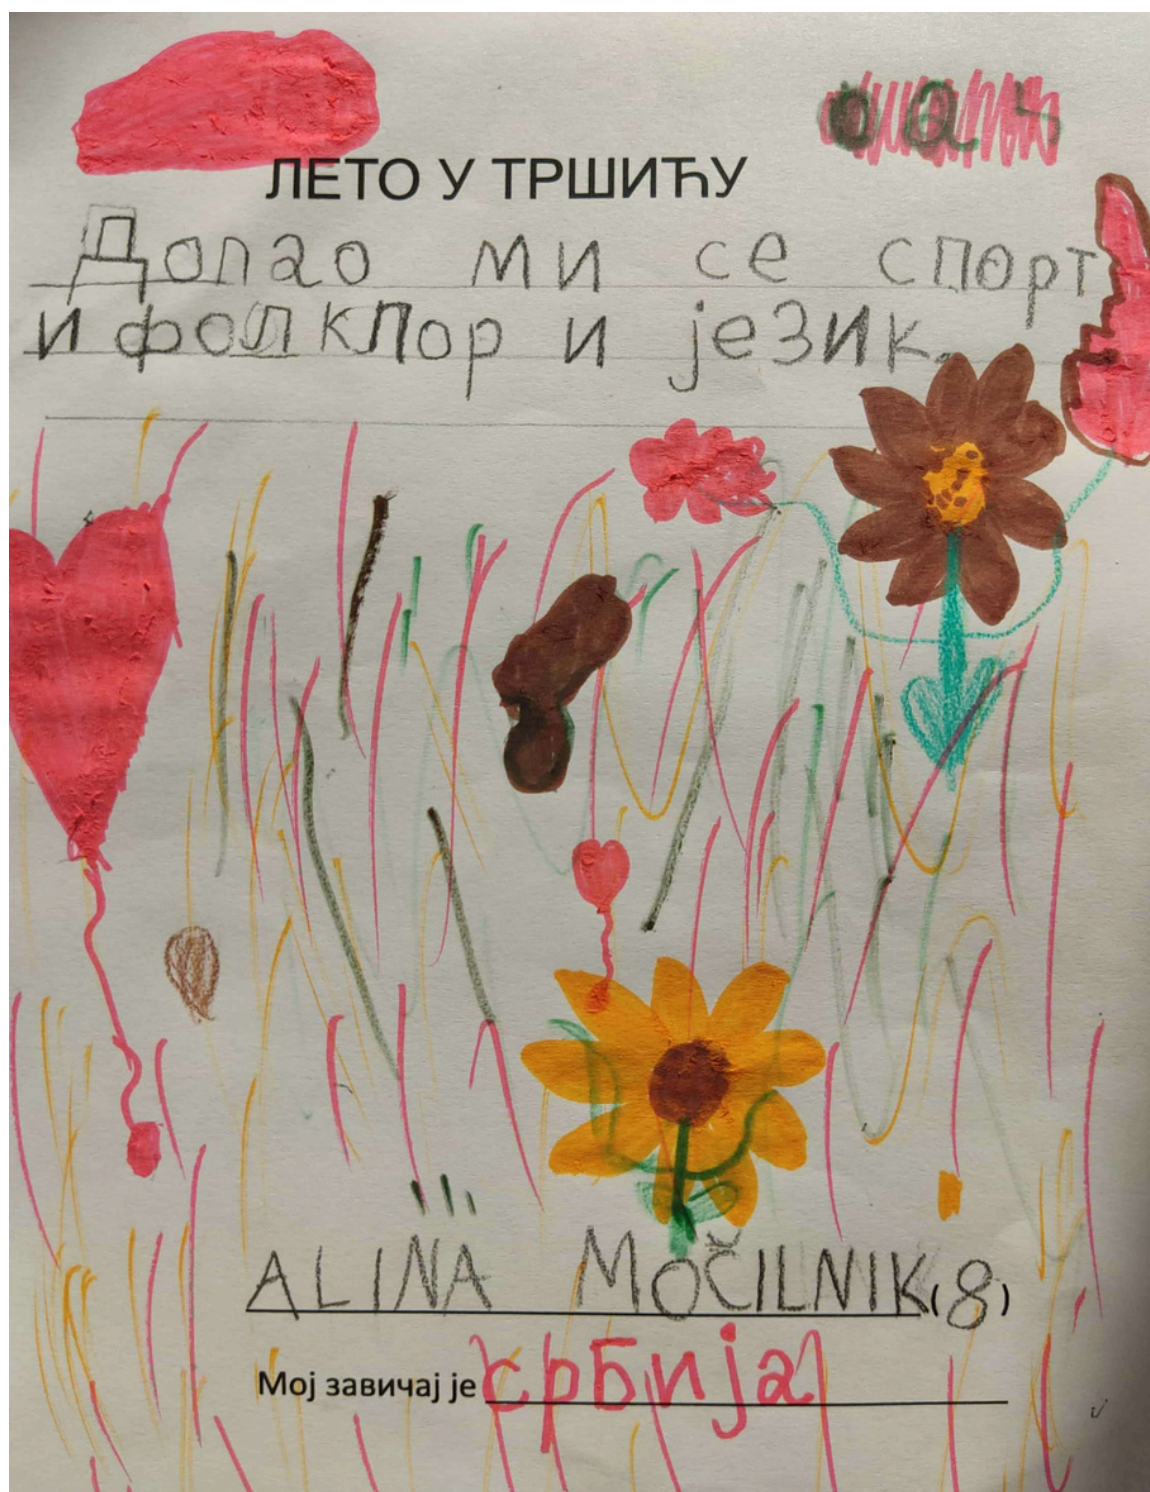 ЛЕТО У ТРШИЋУ
Допао ми се спорт
и фолклор и језик.
ALINA MOČILNIK (8)
Мој завичај је србија